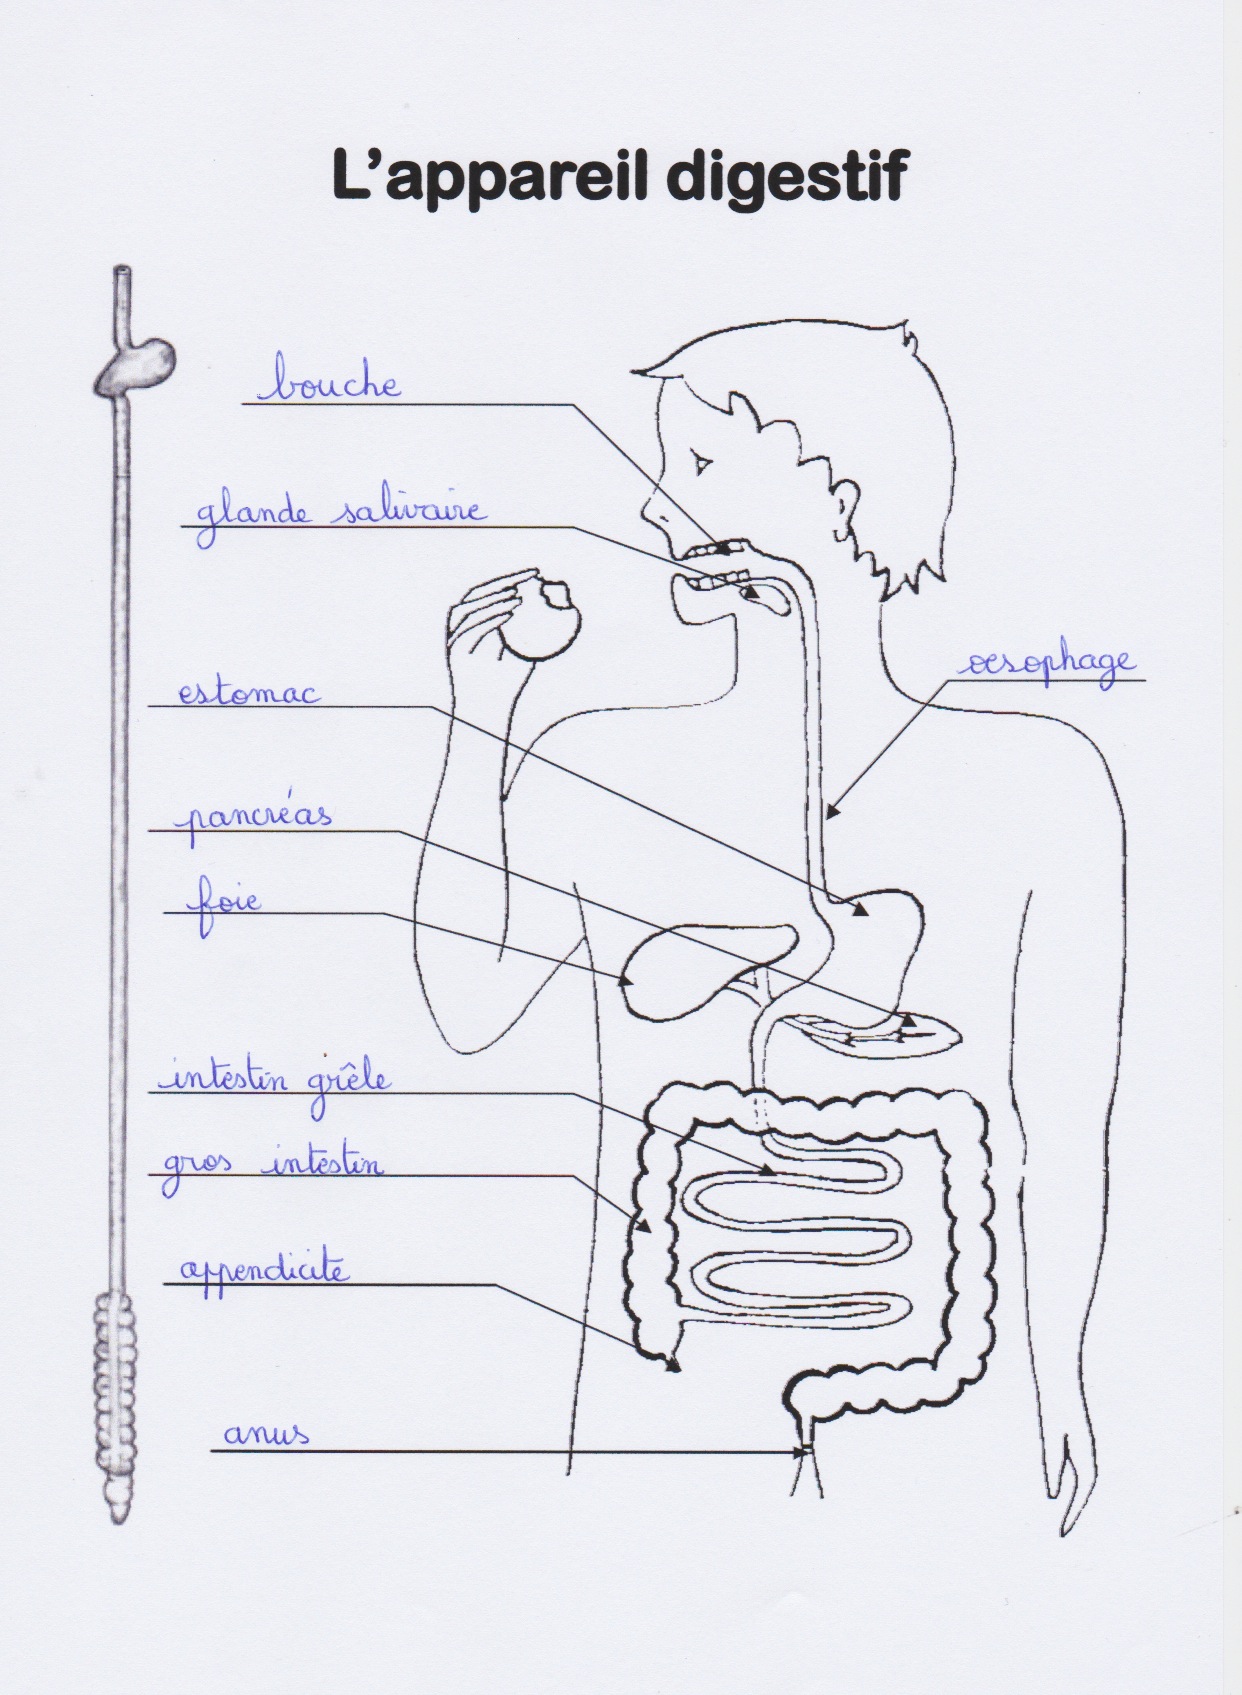 L'appareil digestif
bouche
glande salivaire
oesophage
estomac
pancréas
foie
intestin grêle
gros intestin
appendicite
anus